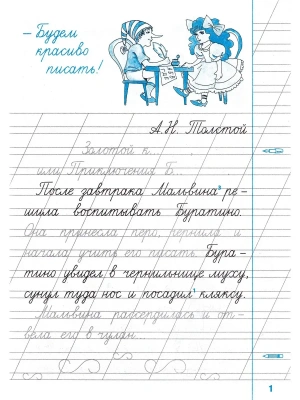 – Будем
красиво
писать!
А.Н. Толстой
Золотой к...
или Приключения Б...
После завтрака Мальвина² ре-
шила воспитывать Буратино.
Она принесла перо, чернила и
начала учить его писать. Бура-
тино увидел в чернильнице муху,
сунул туда нос и посадил¹ кляксу.
Мальвина рассердилась и от-
вела его в чулан...
1